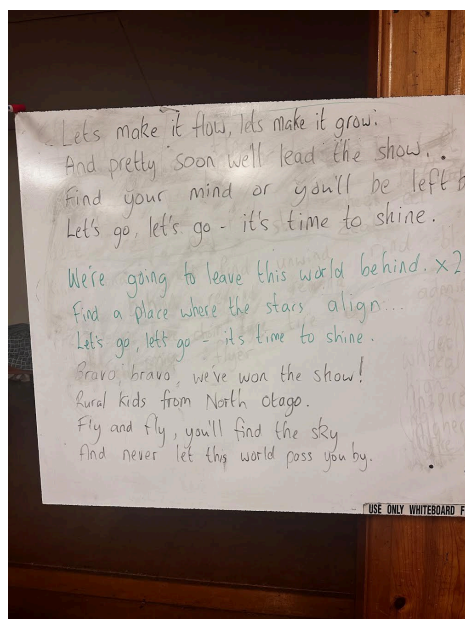 Lets make it flow, lets make it grow.
And pretty soon we'll lead the show..
Find your mind or you'll be left b
Let's go, let's go - it's time to shine.
We're going to leave this world behind. x2
Find a place where the stars align...
Let's go, let's go - its time to shine.
Bravo, bravo, we've won the show!
Rural kids from North Otago.
Fly and fly, you'll find the sky
And never let this world pass you by.
USE ONLY WHITEBOARD F